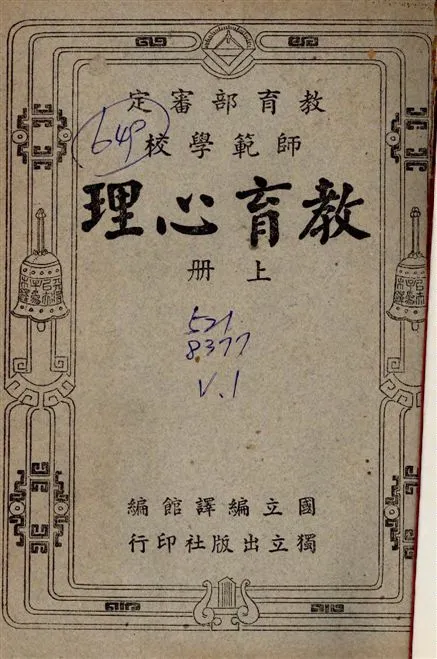 教育部審定
師範學校
教育心理
上册
649
521
8377
V.1
國立編譯館編
獨立出版社印行